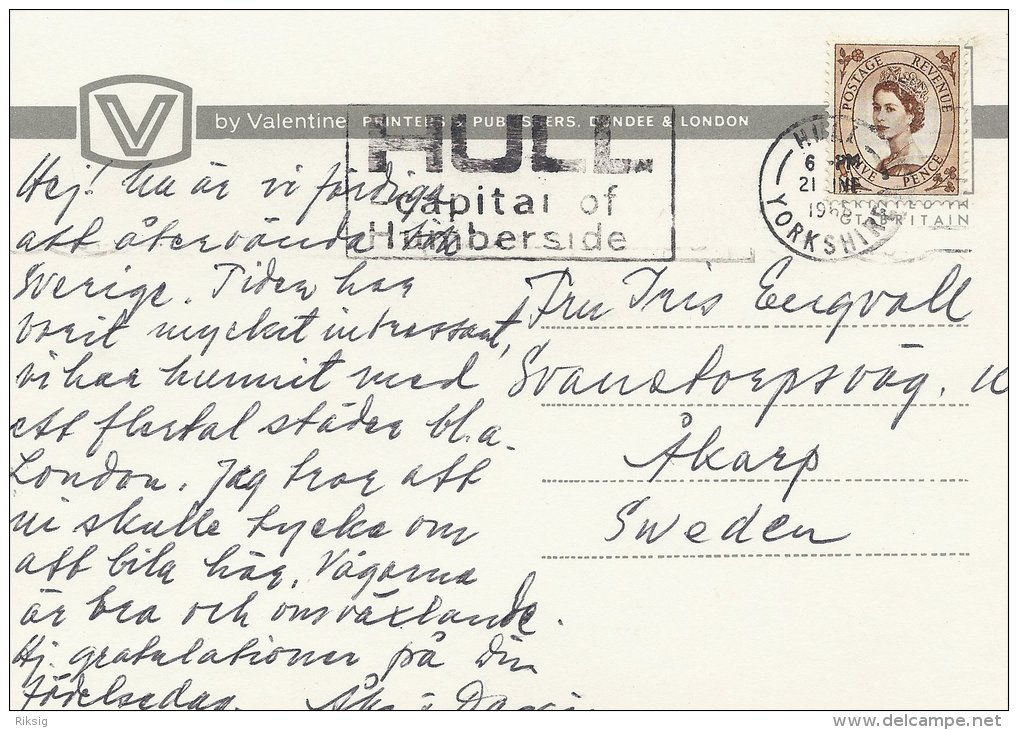 V by Valentine PRINTERS & PUBLISHERS, DUNDEE & LONDON
HULL
capital of
Humberside
POSTAGE REVENUE
FIVE PENCE
6 PM
21
YORKSHIRE
GT. BRITAIN
Hej! Nu är vi färdiga
att återvända till
Sverige. Tiden har
varit mycket intressant,
vi har hunnit med
ett flertal städer bl.a.
London. Jag tror att
ni skulle tycka om
att bila här. Vägarna
är bra och omväxlande.
Hj. gratulationer på Din
födelsedag.
Fru Iris Engvall
Svanetorpsväg.
Åkarp
Sweden
Riksig
delcampe.net